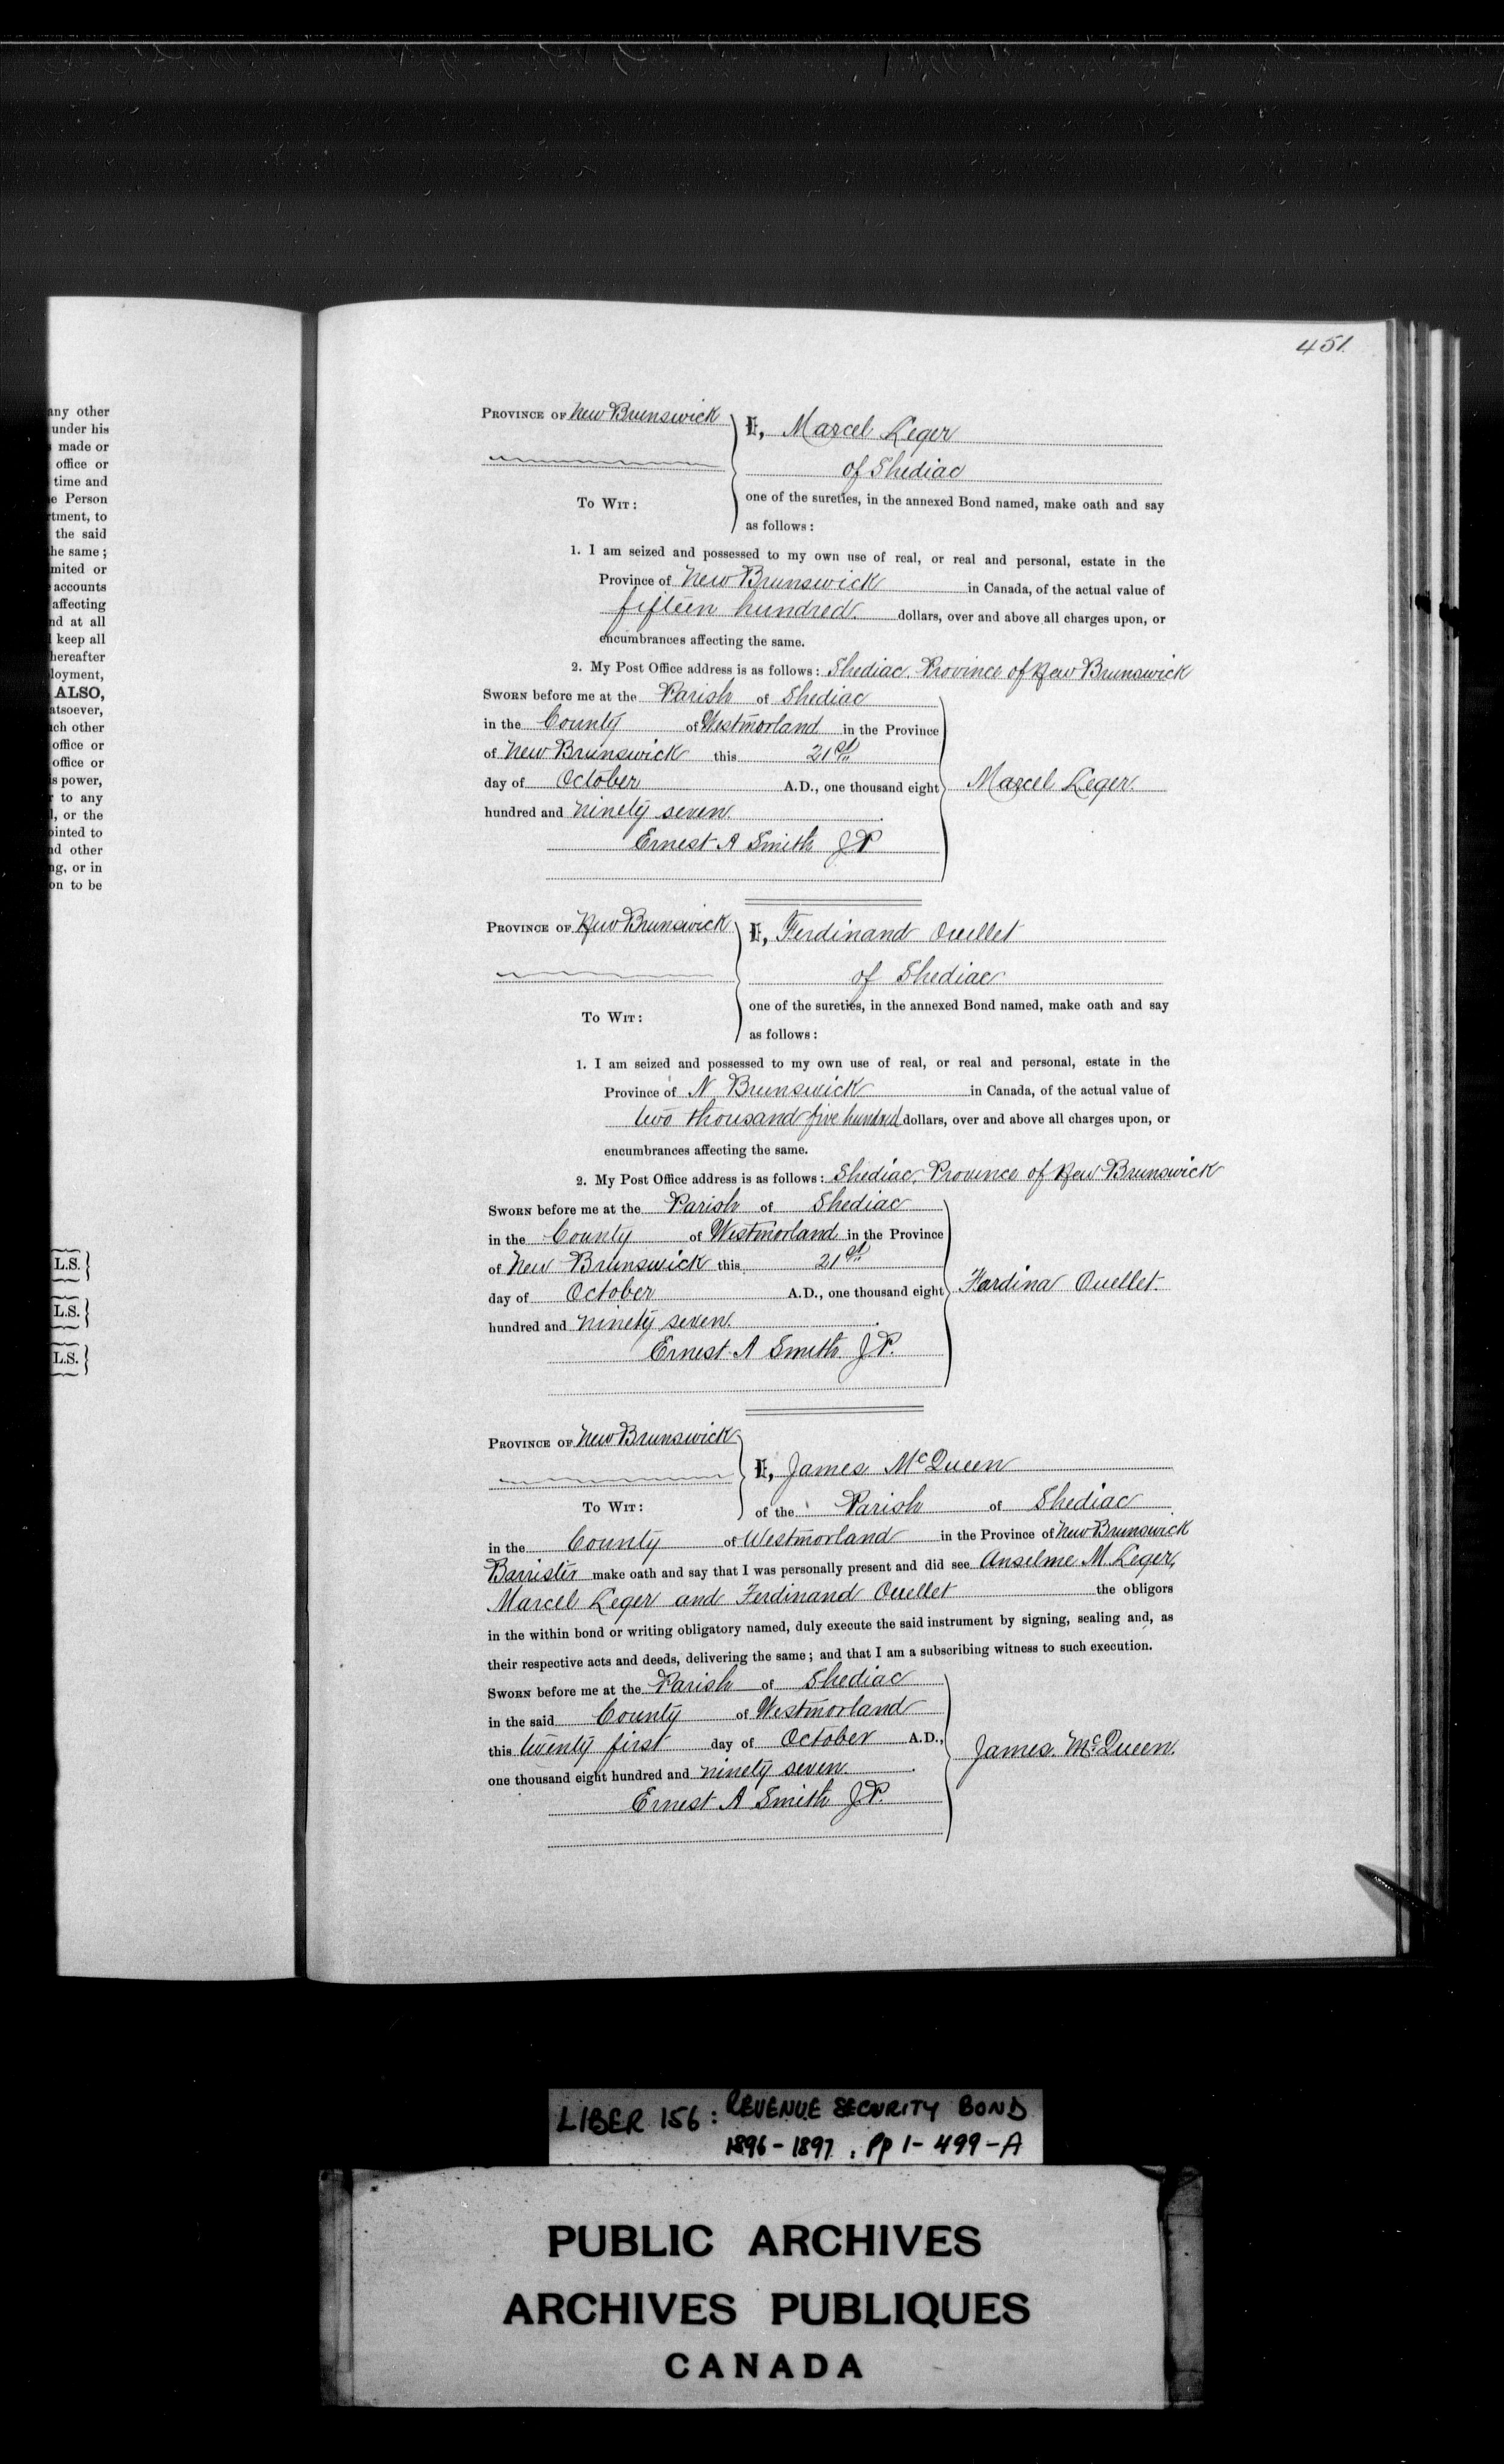 any other
under his
made or
office or
time and
e Person
rtment, to
the said
he same;
mited or
accounts
affecting
nd at all
keep all
hereafter
loyment,
ALSO,
atsoever,
ich other
office or
office or
s power,
to any
l, or the
ointed to
nd other
ng, or in
on to be
L.S.
L.S.
L.S.
451
PROVINCE OF New Brunswick
I, Marcel Leger
of Shediac
TO WIT:
one of the sureties, in the annexed Bond named, make oath and say
as follows:
1. I am seized and possessed to my own use of real, or real and personal, estate in the
Province of New Brunswick in Canada, of the actual value of
fifteen hundred dollars, over and above all charges upon, or
encumbrances affecting the same.
2. My Post Office address is as follows: Shediac, Province of New Brunswick
SWORN before me at the Parish of Shediac
in the County of Westmorland in the Province
of New Brunswick this 21st
day of October A.D., one thousand eight
hundred and ninety seven.
Marcel Leger.
Ernest A Smith J.P
PROVINCE OF New Brunswick
I, Ferdinand Ouellet
of Shediac
TO WIT:
one of the sureties, in the annexed Bond named, make oath and say
as follows:
1. I am seized and possessed to my own use of real, or real and personal, estate in the
Province of N. Brunswick in Canada, of the actual value of
two thousand five hundred dollars, over and above all charges upon, or
encumbrances affecting the same.
2. My Post Office address is as follows: Shediac, Province of New Brunswick
SWORN before me at the Parish of Shediac
in the County of Westmorland in the Province
of New Brunswick this 21st
day of October A.D., one thousand eight
hundred and ninety seven.
Fardina Ouellet.
Ernest A Smith J.P.
PROVINCE OF New Brunswick
I, James McQueen
TO WIT:
of the Parish of Shediac
in the County of Westmorland in the Province of New Brunswick
Barrister make oath and say that I was personally present and did see Anselme M. Leger,
Marcel Leger and Ferdinand Ouellet the obligors
in the within bond or writing obligatory named, duly execute the said instrument by signing, sealing and, as
their respective acts and deeds, delivering the same; and that I am a subscribing witness to such execution.
SWORN before me at the Parish of Shediac
in the said County of Westmorland
this twenty first day of October A.D.,
one thousand eight hundred and ninety seven.
James McQueen.
Ernest A Smith J.P.
LIBER 156: REVENUE SECURITY BOND
1896-1897. Pp 1-499-A
PUBLIC ARCHIVES
ARCHIVES PUBLIQUES
CANADA